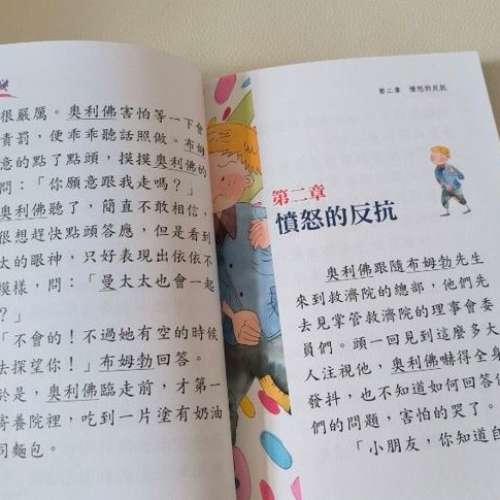 很嚴厲。奧利佛害怕等一下會
責罰，便乖乖聽話照做。布姆
意的點了點頭，摸摸奧利佛的
問：「你願意跟我走嗎？」
奧利佛聽了，簡直不敢相信，
很想趕快點頭答應，但是看到
太的眼神，只好表現出依依不
模樣，問：「曼太太也會一起
？」
「不會的！不過她有空的時候
去探望你！」布姆勃回答。
於是，奧利佛臨走前，才第一
寄養院裡，吃到一片塗有奶油
司麵包。
第二章 憤怒的反抗
第二章
憤怒的反抗
奧利佛跟隨布姆勃先生
來到救濟院的總部，他們先
去見掌管救濟院的理事會委
員們。頭一回見到這麼多大
人注視他，奧利佛嚇得全身
發抖，也不知道如何回答
們的問題，害怕的哭了。
「小朋友，你知道自